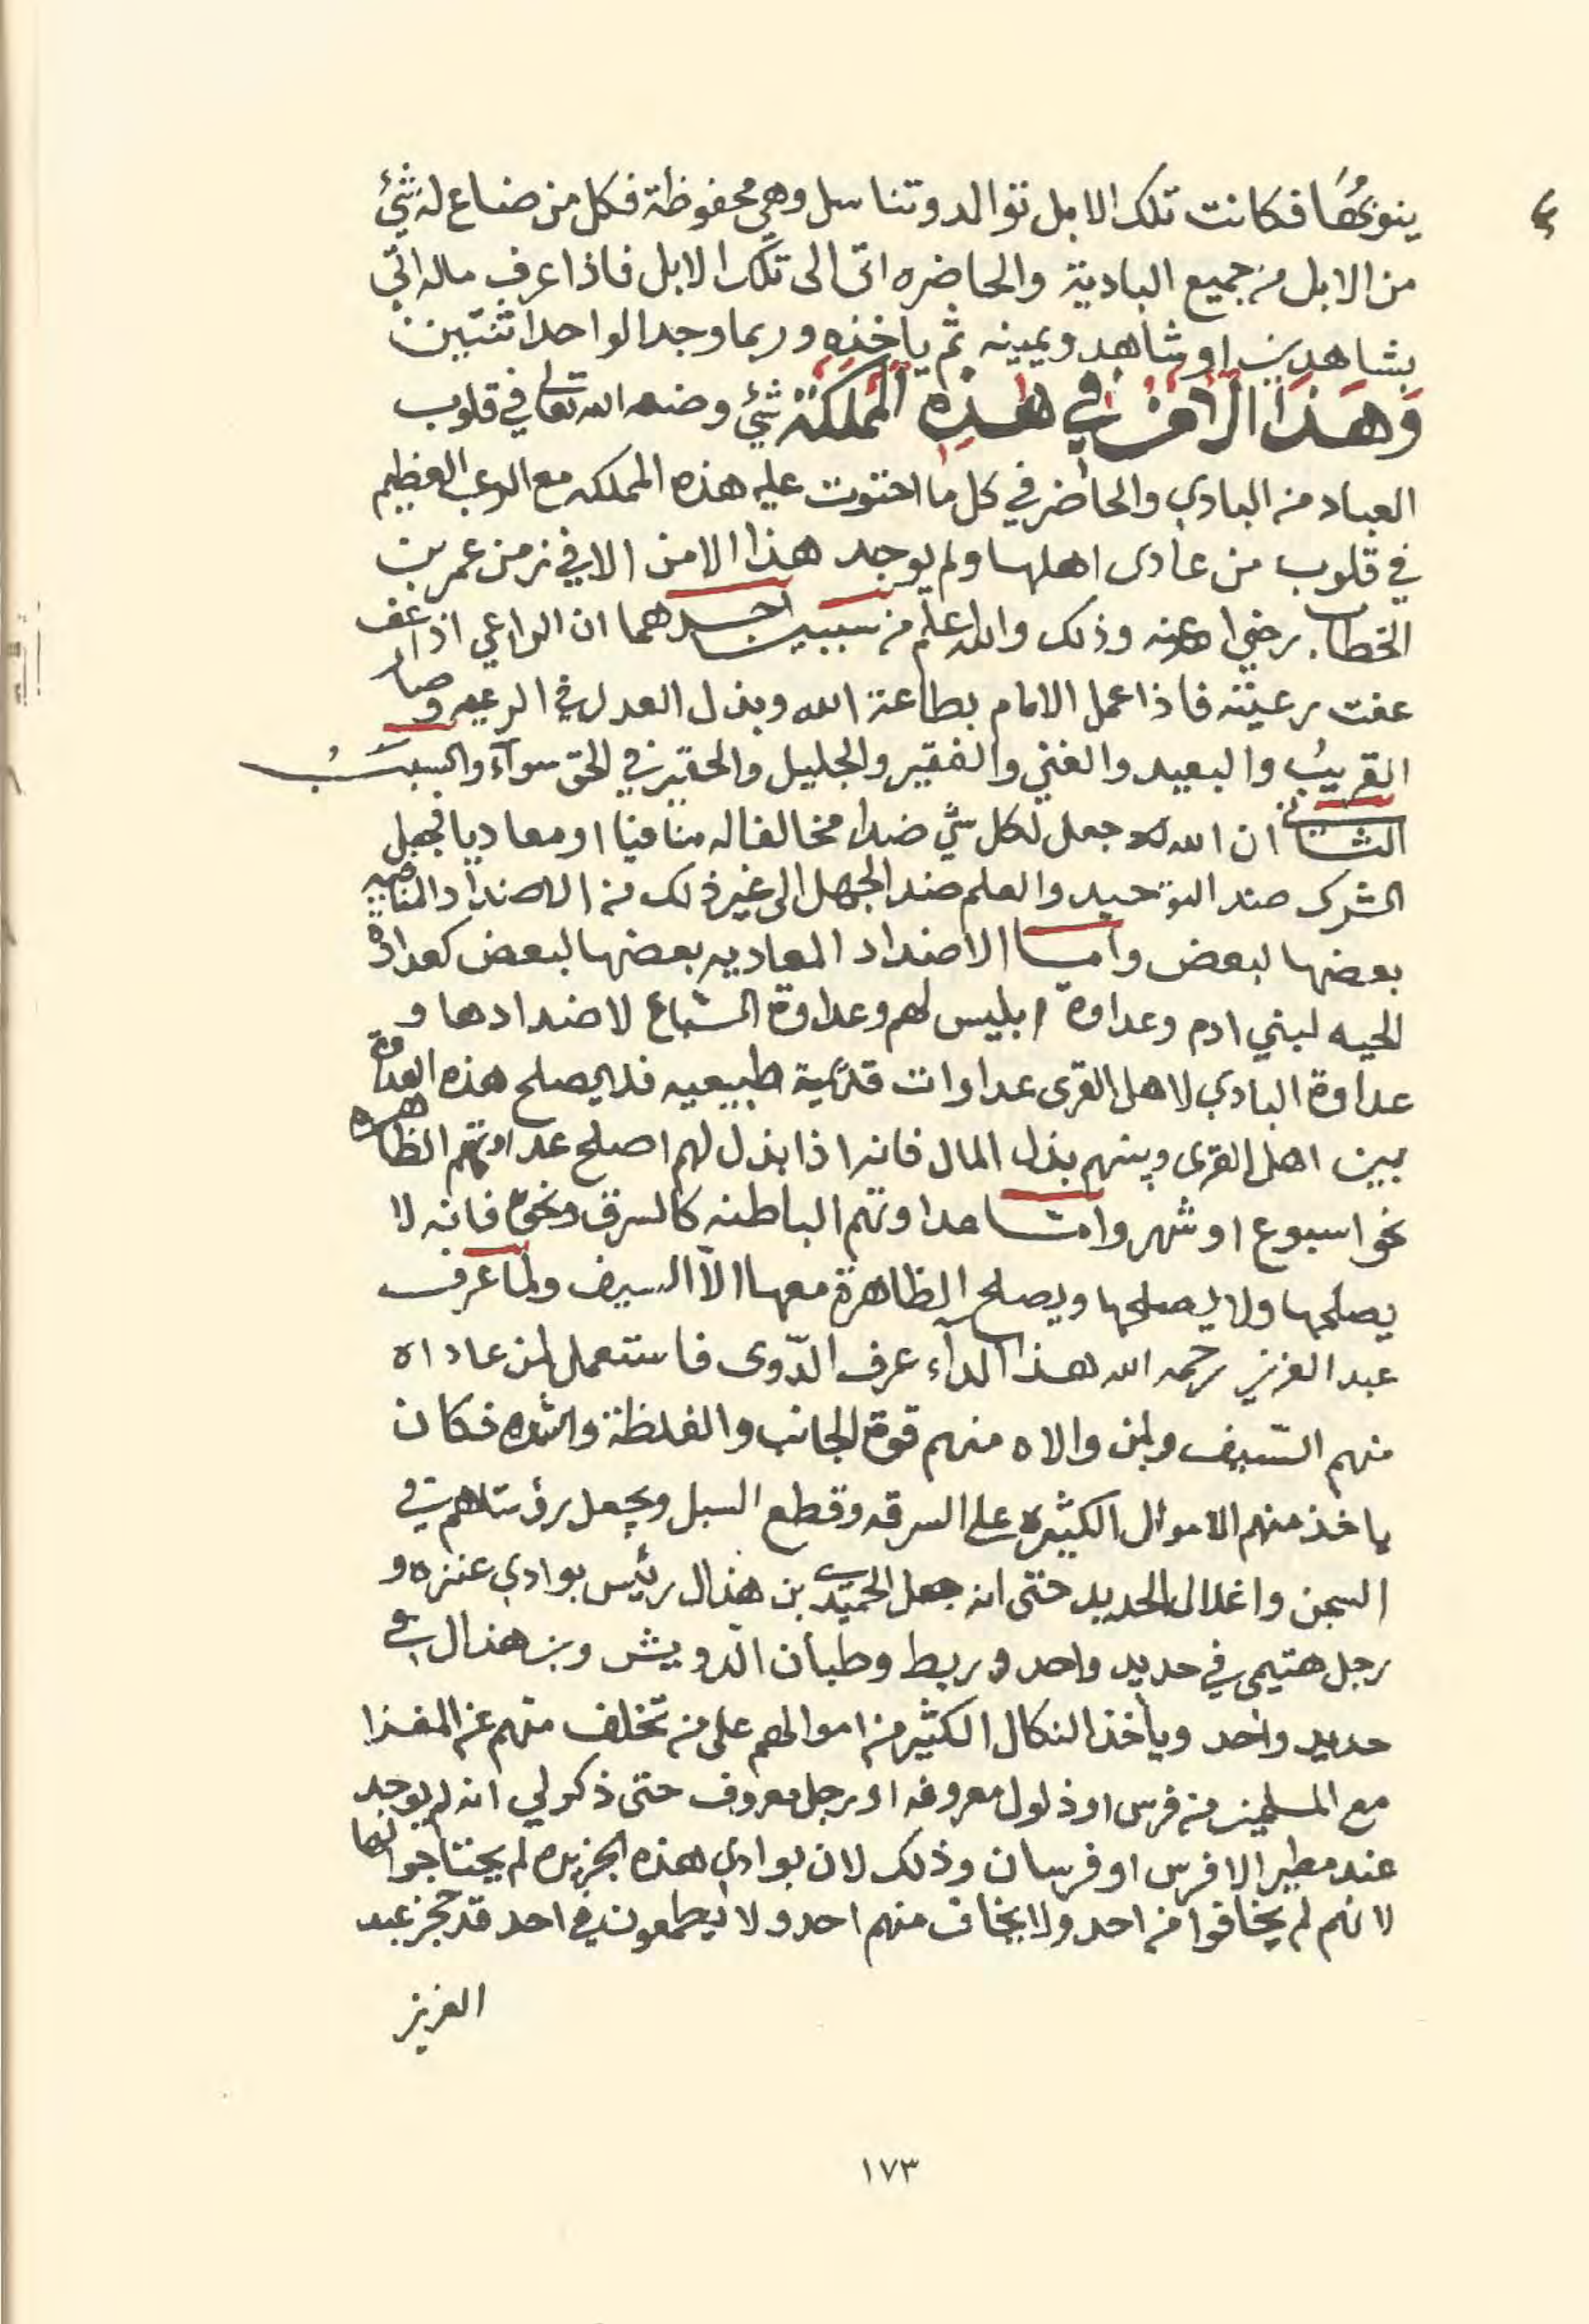 ينوبُها فكانت تلك الابل توالد وتناسل وهي محفوظة فكل من ضاع له شيء
من الابل من جميع البادية والحاضره اتى الى تلك الابل فاذا عرف ماله اتى
بشاهدين او شاهد ويمينه ثم ياخذه وربما وجد الواحد اثنتين
وَهَذا الامن في هذِه المملكة شيء وضعه الله تعالى في قلوب
العباد من البادي والحاضر في كل ما احتوت عليه هذه المملكه مع الرعب العظيم
في قلوب من عادى اهلها ولم يوجد هذا الامن الا في زمن عمر بن
الخطاب رضي الله عنه وذلك والله اعلم من سببين احدهما ان الراعي اذا عف
عفت رعيته فاذا عمل الامام بطاعة الله وبذل العدل في الرعيه وصار
القريبُ والبعيد والغني والفقير والجليل والحقير في الحق سوآء والسببُ
الثاني ان الله جعل لكل شي ضدا مخالفا له منافيا او معاديا فجعل
الشرك ضد التوحيد والعلم ضد الجهل الى غير ذلك من الاضداد
بعضها لبعض واما الاضداد المعاديه بعضها لبعض كعداوة
الحيه لبني ادم وعداوة ابليس لهم وعداوة السباع لاضدادها و
عداوة البادي لاهل القرى عداوات قديمة طبيعيه فلا يصلح هذه العداوة
بين اهل القرى وبينهم بذل المال فانه اذا بذل لهم اصلح عداوتهم الظاهره
نحو اسبوع او شهر وامّا عداوتهم الباطنه كالسرق ونحوه فانه لا
يصلحها ولا يصلحها ويصلح الظاهرة معها الاّ السيف ولما عرف
عبد العزيز رحمه الله هذا الدآء عرف الدّوى فاستعمل لمن عاداه
منهم السّيف ولمن والاه منهم قوة الجانب والغلظة والشده فكان
ياخذ منهم الاموال الكثيره على السرقه وقطع السبل ويجعل رؤساهم في
السجن واغلال الحديد حتى انه جعل الحميدي بن هذال رئيس بوادي عنزه و
رجل هتيمي في حديد واحد وربط وطبان الدّويش وبن هذال في
حديد واحد وياخذ النكال الكثير من اموالهم على من تخلف منهم عن المغزا
مع المسلمين من فرس او ذلول معروفه او رجل معروف حتى ذكر لي انه لم يوجد
عند مطير الا فرس او فرسان وذلك لان بوادي هذه الجزيره لم يحتاجوا لها
لانهم لم يخافوا من احد ولا يخاف منهم احد ولا يطمعون في احد قد حجز عبد
العزيز
١٧٣